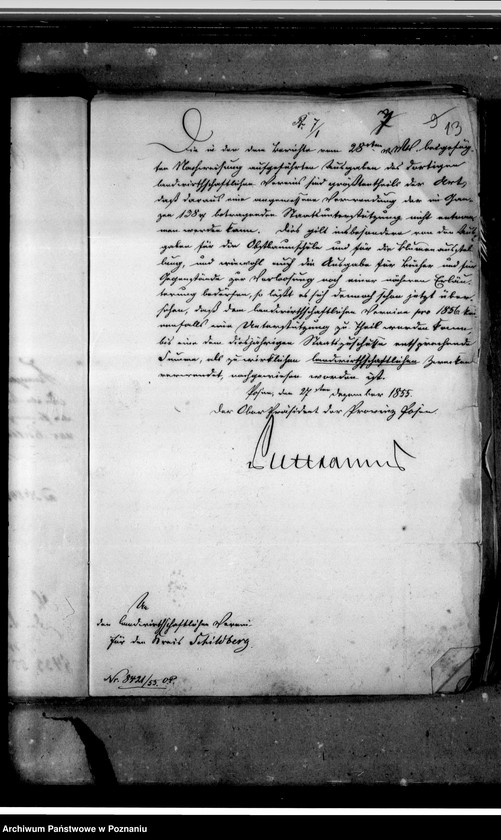 pr. 7/1
13
Die in der dem Berichte vom 28ten v. Mts. beigefüg-
ten Nachweisung aufgeführten Ausgaben des dortigen
landwirthschaftlichen Vereins sind größtentheils der Art,
daß daraus eine angemessene Verwendung der im Gan-
zen betragenden Staatsunterstützung nicht entnom-
men werden kann. Dies gilt insbesondere von den Aus-
gaben für die Obstbaumschule und für die Blumenausstel-
lung, und wiewohl auch die Ausgabe für Bücher und für
Gegenstände zur Verloosung noch einer näheren Erläu-
terung bedürfen, so läßt es sich dennoch schon jetzt über-
sehen, daß dem landwirthschaftlichen Vereine pro 1856 kei-
nenfalls eine Unterstützung zu Theil werden kann,
bis eine dem diesjährigen Staatszuschusse entsprechende
Summe, als zu wirklichen landwirthschaftlichen Zwecken
verwendet, nachgewiesen worden ist.
Posen, den 27ten Dezember 1855.
Der Ober Präsident der Provinz Posen.
Puttkammer
An
den landwirthschaftlichen Verein
für den Kreis Schildberg.
Nr. 8421/55. O.P.
Archiwum Państwowe w Poznaniu